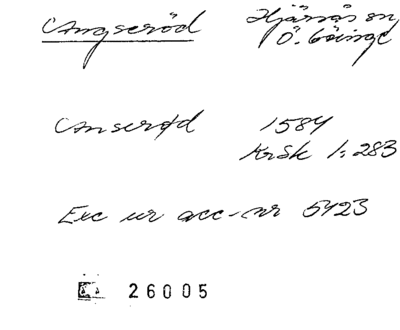 Angseröd Hjärsås sn
Ö. Göinge
Anserød 1584
KrSk 1:283
Exc ur acc-nr 5423
26005